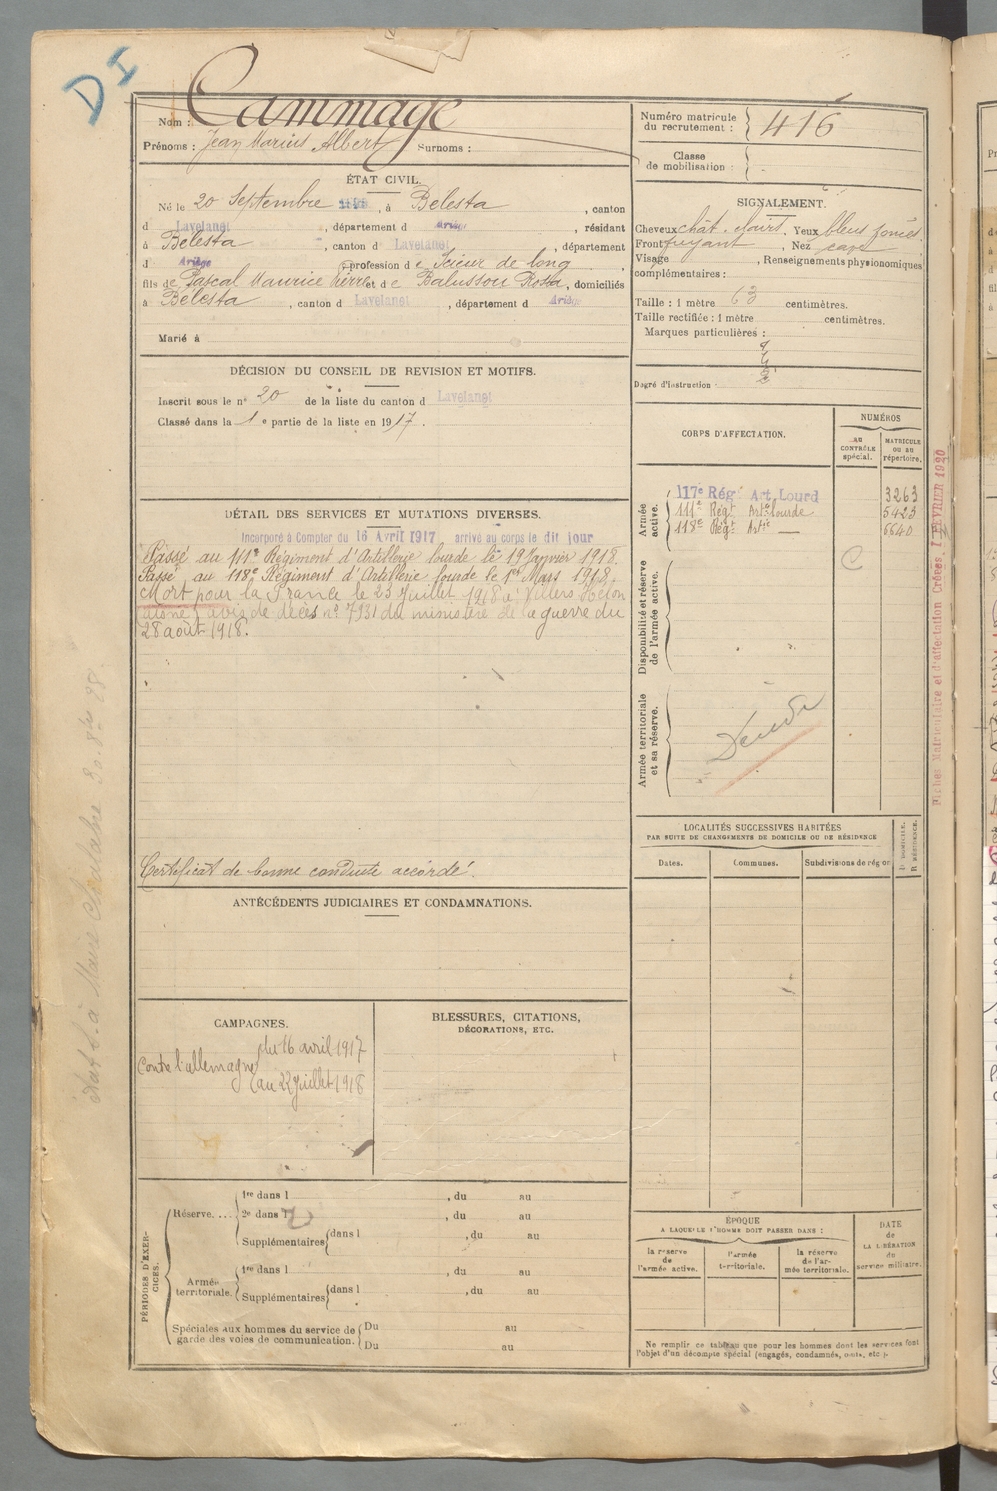 DI
Nom : Cammage
Prénoms : Jean Marius Albert Surnoms :
Numéro matricule du recrutement : 416
Classe de mobilisation :
ÉTAT CIVIL.
Né le 20 Septembre 1898, à Belesta, canton
d Lavelanet, département d Ariège, résidant
à Belesta, canton d Lavelanet, département
d Ariège, profession de Scieur de long
fils de Pascal Maurice Pierre et de Balussou Rosa, domiciliés
à Belesta, canton d Lavelanet, département d Ariège
Marié à
SIGNALEMENT.
Cheveux chât. clairs. Yeux bleus foncés
Front fuyant, Nez cave
Visage , Renseignements physionomiques
complémentaires :
Taille : 1 mètre 63 centimètres.
Taille rectifiée : 1 mètre centimètres.
Marques particulières :
Degré d'instruction :
DÉCISION DU CONSEIL DE REVISION ET MOTIFS.
Inscrit sous le n° 20 de la liste du canton d Lavelanet
Classé dans la 1e partie de la liste en 1917.
CORPS D'AFFECTATION.
NUMÉROS
AU CONTRÔLE spécial.
MATRICULE ou au répertoire.
Armée active.
117e Rég. Art. Lourd 3263
111e Régt Artie lourde 5423
118e Régt Artie — 6640
C
Disponibilité et réserve de l'armée active.
Armée territoriale et sa réserve.
DÉTAIL DES SERVICES ET MUTATIONS DIVERSES.
Incorporé à Compter du 16 Avril 1917 arrivé au corps le dit jour
Passé au 111e Régiment d'Artillerie lourde le 19 Janvier 1918
Passé au 118e Régiment d'Artillerie lourde le 1er Mars 1918.
Mort pour la France le 23 Juillet 1918 à Villers Hélon
(aisne) avis de décès n° 7931 du ministère de la guerre du
28 août 1918.
Certificat de bonne conduite accordé.
ANTÉCÉDENTS JUDICIAIRES ET CONDAMNATIONS.
CAMPAGNES.
Contre l'allemagne du 16 avril 1917
au 22 juillet 1918
BLESSURES, CITATIONS,
DÉCORATIONS, ETC.
LOCALITÉS SUCCESSIVES HABITÉES
PAR SUITE DE CHANGEMENTS DE DOMICILE OU DE RÉSIDENCE
Dates. Communes. Subdivisions de région
D. DOMICILE.
R. RÉSIDENCE.
PÉRIODES D'EXERCICES.
Réserve....
1re dans l , du au
2e dans l , du au
Supplémentaires dans l , du au
Armée territoriale.
1re dans l , du au
Supplémentaires dans l , du au
Spéciales aux hommes du service de garde des voies de communication.
Du au
Du au
ÉPOQUE
A LAQUELLE L'HOMME DOIT PASSER DANS :
la réserve de l'armée active.
l'armée territoriale.
la réserve de l'armée territoriale.
DATE de LA LIBÉRATION du service militaire.
Ne remplir ce tableau que pour les hommes dont les services font
l'objet d'un décompte spécial (engagés, condamnés, omis, etc.).
Fiches Matriculaire et d'affectation Créées, FÉVRIER 1920